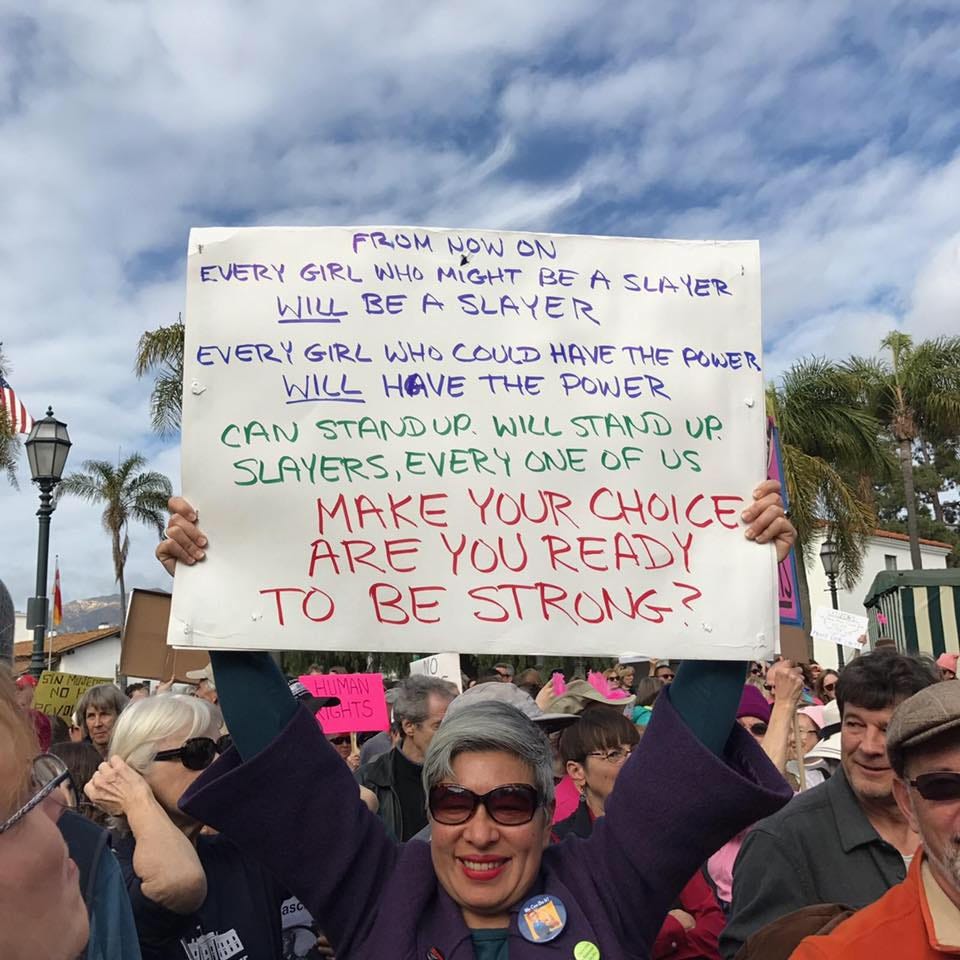 FROM NOW ON
EVERY GIRL WHO MIGHT BE A SLAYER
WILL BE A SLAYER
EVERY GIRL WHO COULD HAVE THE POWER
WILL HAVE THE POWER
CAN STAND UP. WILL STAND UP.
SLAYERS, EVERY ONE OF US
MAKE YOUR CHOICE
ARE YOU READY
TO BE STRONG?
SIN MUJERES
NO H
HUMAN
RIGHTS
NO
We Can Do It!